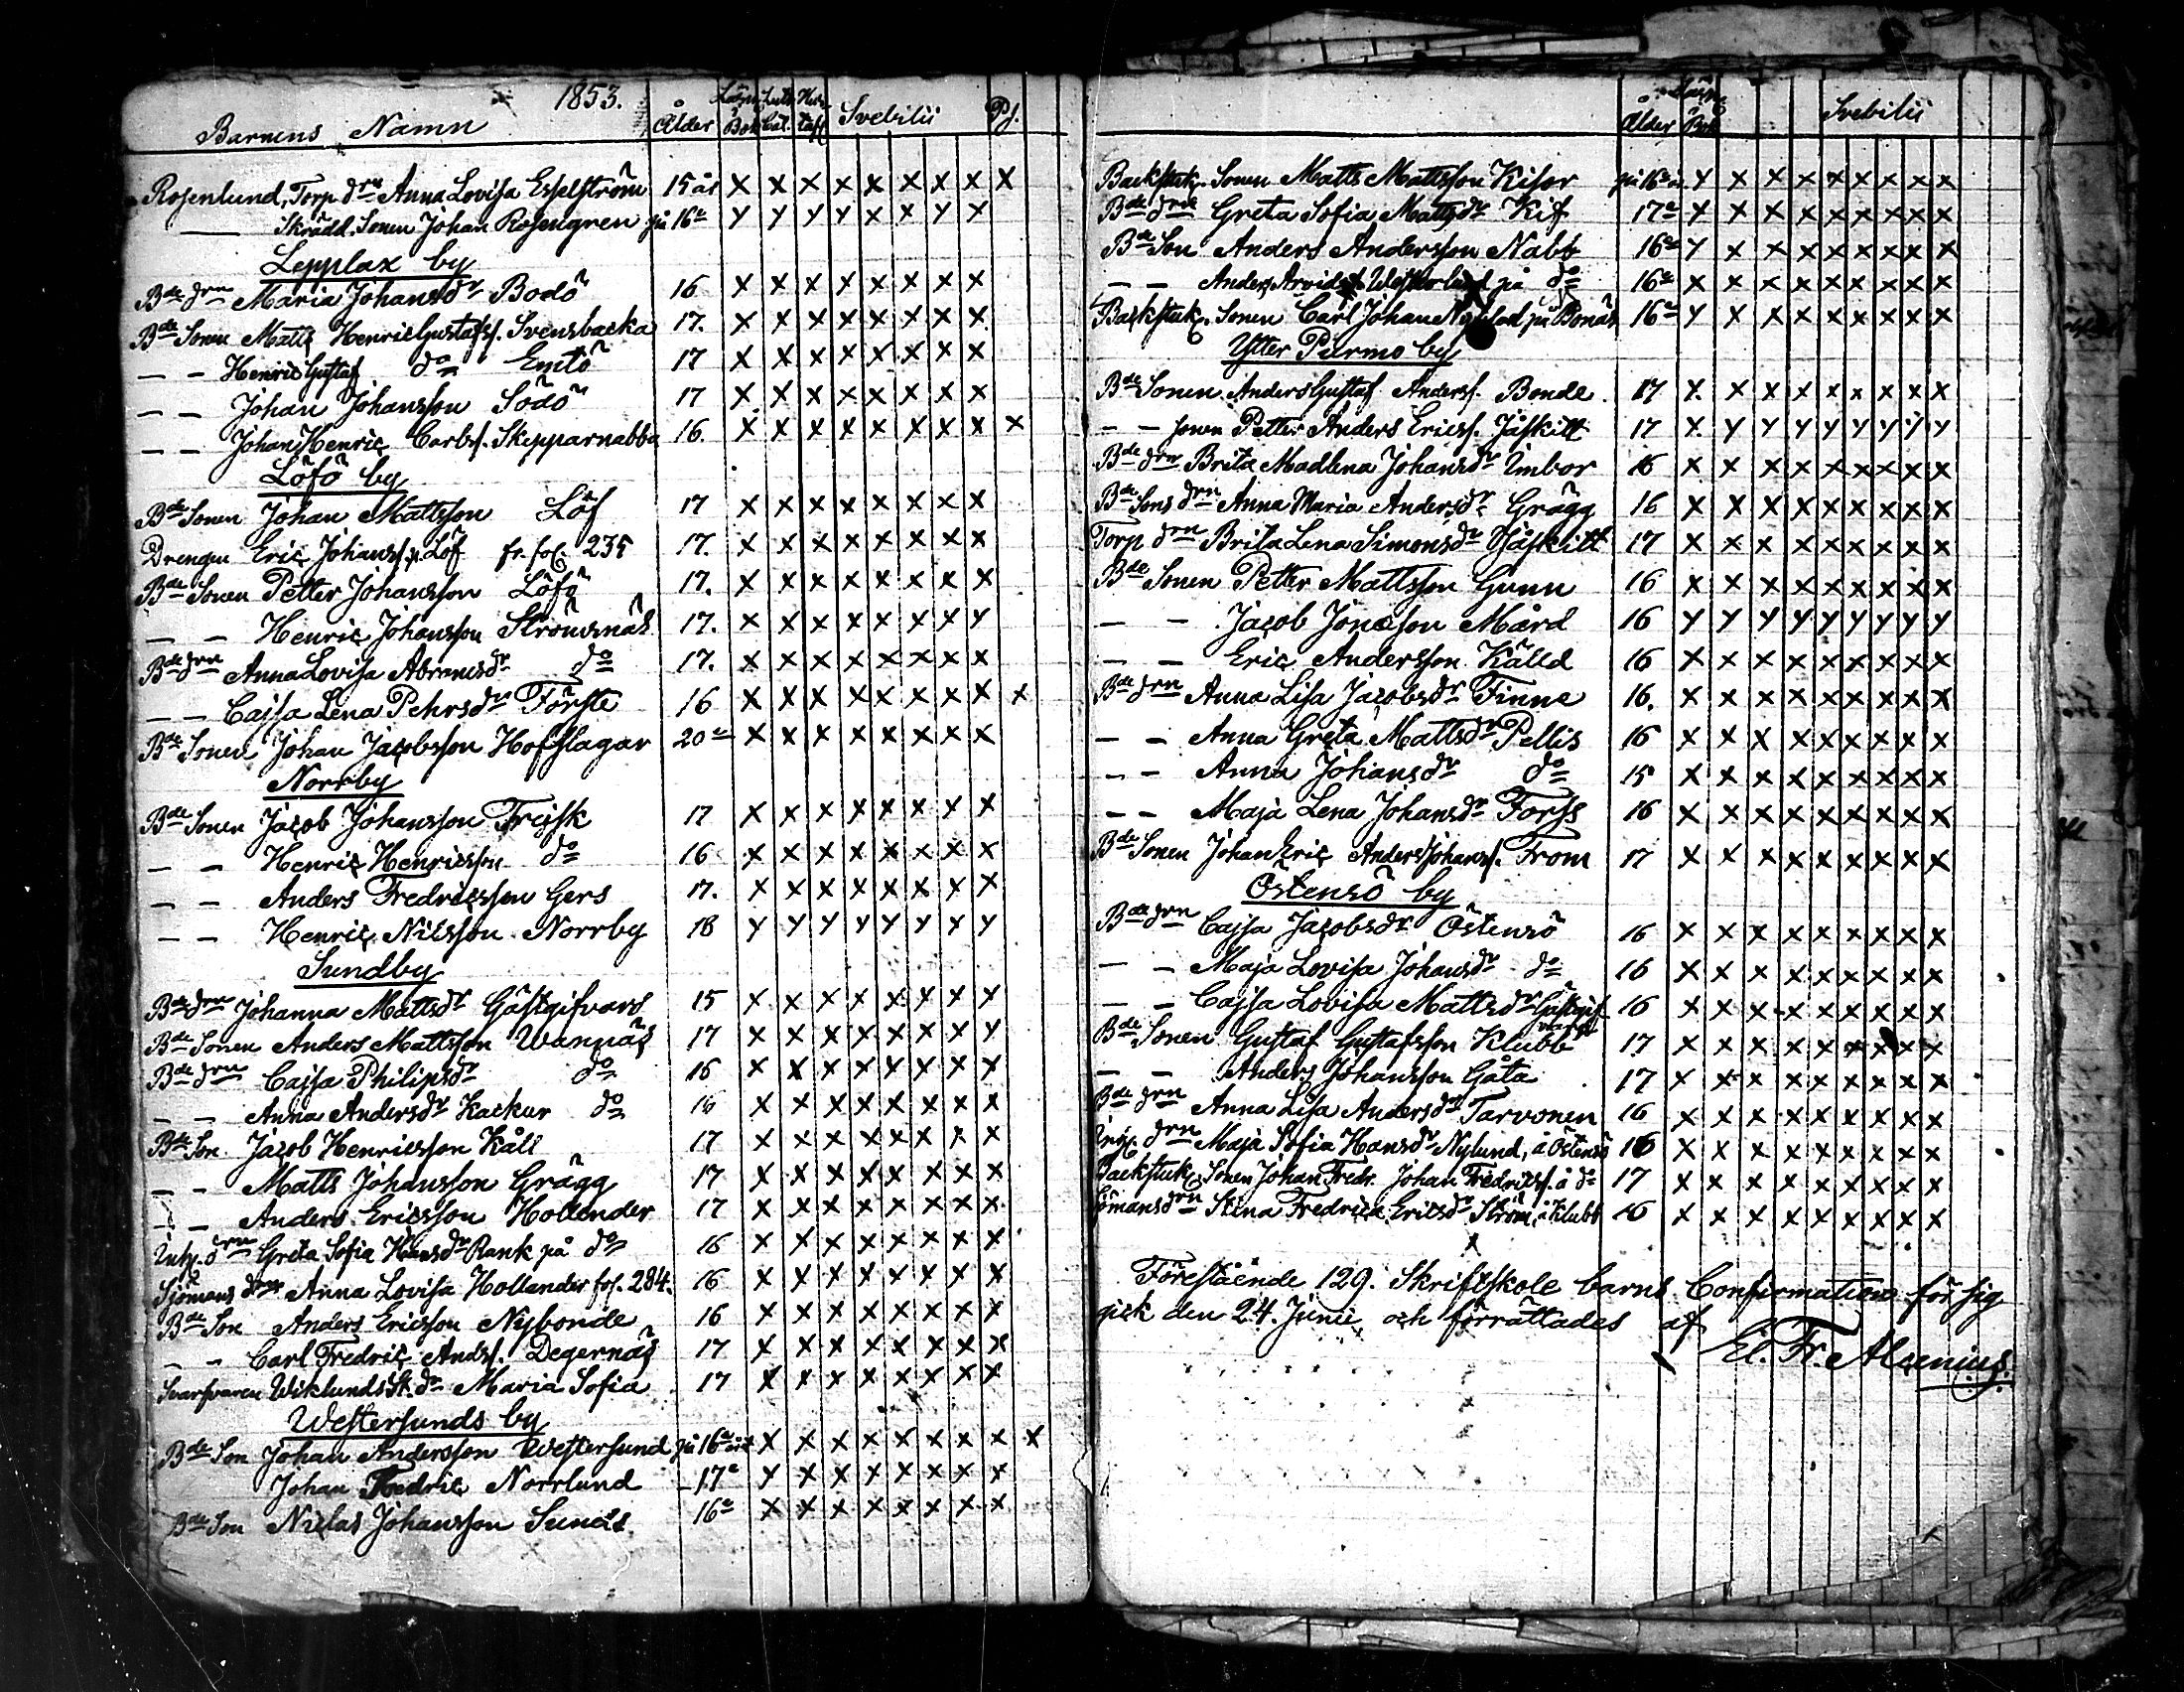 1853.
Barnens Namn Ålder Bok Cat. Svebilii Ps.
Rosenlund, Torp drn Anna Lovisa Esselström 15 år x x x x x x x x x
— Skrädd. Sonen Johan Rosengren på 16e y y y y x x y x
Lepplax by
Bde drn Maria Johansdr Bodö 16 x x x x x x x x
Bde Sonen Matts Henric Gustafss. Svensbacka 17. x x x x x x x x
— — Henric Gustaf do Emtö 17 x x x x x x x x
— — Johan Johansson Södö 17 x x x x x x x x
— — Johan Henric Carlss. Skepparnabba 16. x x x x x x x x x
Löfö by
Bde Sonen Johan Mattsson Löf 17 x x x x x x x x
Drengen Eric Johanss. Löf fr. fol. 235 17. x x x x x x x x
Bde Sonen Petter Johansson Löfö 17. x x x x x x x x
— — Henric Johansson Strömsnäs 17. x x x x x x x y
Bde drn Anna Lovisa Abramsdr do 17. x x x x x x x x
— — Cajsa Lena Pehrsdr Förste 16 x x x x x x x x x
Bde Sonen Johan Jacobsson Hofslagar 20e x x x x x x x x
Norrby
Bde Sonen Jacob Johansson Frissk 17 x x x x x x x x
— — Henric Henricsson do 16 x x x x x x x x
— — Anders Fredricsson Gers 17. x x x x x x x x
— — Henric Nilsson Norrby 18 y y y y y y y y
Sundby
Bde drn Johanna Mattsdr Gästgifvars 15 x x x x x y x y
Bde Sonen Anders Mattsson Wannäs 17 x x x x x x x y
Bde drn Cajsa Philipsdr do 16 x x x x x x x x
— — Anna Andersdr Kackur do 16 x x x x x x x x
Bde Son Jacob Henricsson Kåll 17 x x x x x x x x
— — Matts Johansson Grägg 17 x x x x x x x x
— — Anders Ericsson Hollender 17 x x x x x x x x
Inhs. drn Greta Sofia Hansdr Rank på do 16 x x x x x x x x
Sjömans drn Anna Lovisa Hollander fol. 284. 16 x x x x x x x x
Bde Son Anders Ericsson Nybonde 16 x x x x x x x x
— — Carl Fredric Ands. Degernäs 17 x x x x x x x x
Svarfvaren Wiklunds dr Maria Sofia 17 x x x x x x x x
Westersunds by
Bde Son Johan Andersson Westersund på 16e året x x x x x x x x x
Johan Fredric Norrlund 17e x x x x x x x x
Bde Son Niclas Johansson Sunäs 16e x x x x x x x x
Ålder Bok Svebilii
Backstuk. Sonen Matts Mattsson Kisor på 16e å. y x x x x x x x x
Bde drn Greta Sofia Mattsdr Kis 17e y x x x x x x x x
Bde Son Anders Andersson Nabb 16e y x x x x x x x x
— — Anders Arvids Westerlund på do 16e x x x x x x x x x
Backstuk. Sonen Carl Johan på Bonäs 16e y x x x x x x x x
Ytter Purmo by
Bde Sonen Anders Gustaf Anderss. Bonde 17 x x x x x x x x x
— — Sonen Petter Anders Ericss. Jåfskitt 17 x y y y y y y y y
Bde drn Brita Madlena Johansdr Imbor 16 x x x x x x x x x
Bde Sons drn Anna Maria Andersdr Grägg 16 x x x x x x x x x
Torp drn Brita Lena Simonsdr 17 x x x x x x x x x
Bde Sonen Petter Mattsson Gunn 16 x x x x x x x x x
— — Jacob Jonasson Mård 16 y y y y y y y y y
— — Eric Andersson Källd 16 x x x x x x x x x
Bde drn Anna Lisa Jacobsdr Finne 16. x x x x x x x x x
— — Anna Greta Mattsdr Pellis 16 x x x x x x x x x
— — Anna Johansdr do 15 x x x x x x x x x
— — Maja Lena Johansdr Forss 16 x x x x x x x x x
Bde Sonen Johan Eric Anders Johanss. From 17 x x x x x x x x x
Östensö by
Bde drn Cajsa Jacobsdr Östensö 16 x x x x x x x x x
— — Maja Lovisa Johansdr do 16 x x x x x x x x x
— — Cajsa Lovisa Mattsdr Gästgif 16 x x x x x x x x x
Bde Sonen Gustaf Gustafsson Klubb 17 x x x x x x x x x
— — Anders Johansson Gåta 17 x x x x x x x x x
Bde drn Anna Lisa Andersdr Tarvonen 16 x x x x x x x x x
Inhs. drn Maja Sofia Hansdr Nylund, å Östensö 16 x x x x x x x x x
Backstuk. Sonen Johan Fredr. Johan Fredricss. å do 17 x x x x x x x x x
Sjömans drn Stina Fredrica Ericsdr Ström, å Klubb 16 x x x x x x x x x
Förestående 129. Skriftskole barns Confirmation för sig
gick den 24. Junii, och förrättades af
El. Fr. Alcenius.